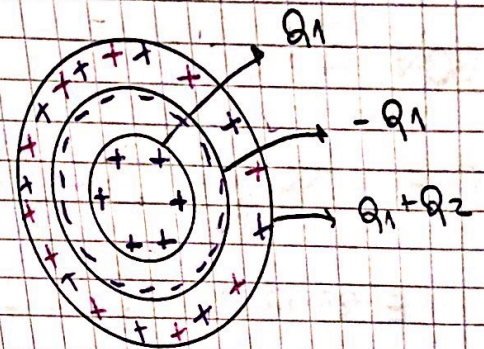 Q1
- Q1
Q1+Q2